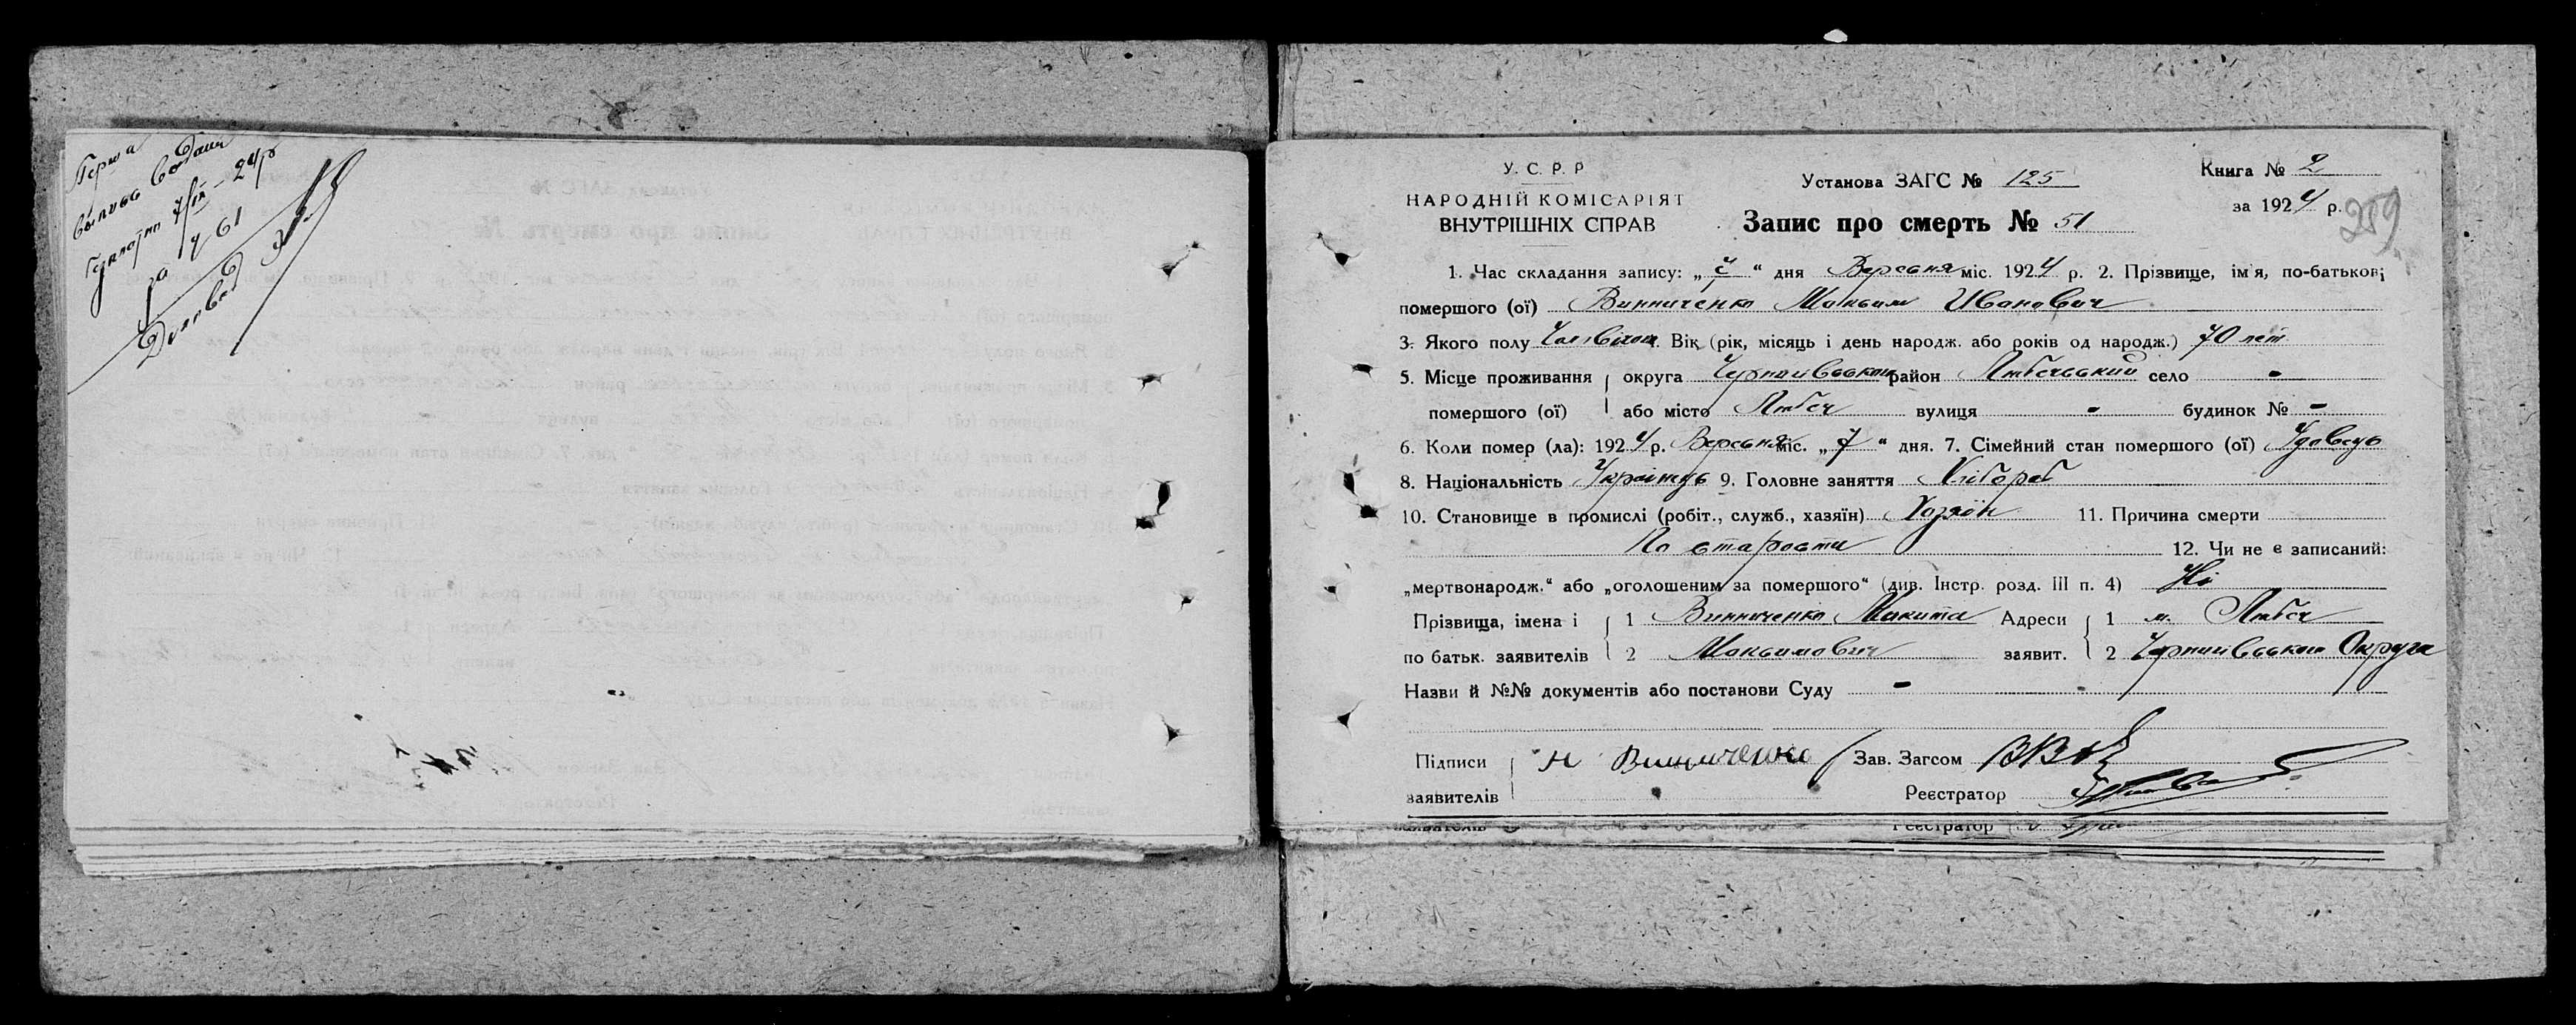 Перша
выпись водана
безплатно 7/IX - 24 р
за № 61
Діловод
У. С. Р. Р
НАРОДНІЙ КОМІСАРІЯТ
ВНУТРІШНІХ СПРАВ
Установа ЗАГС № 125
Запис про смерть № 51
Книга № 2
за 1924 р.
209
1. Час складання запису: „ “ дня Версьня міс. 1924 р. 2. Прізвище, ім'я, по-батькові
помершого (ої) Винниченко Максим Иванович
3. Якого полу 4. Вік (рік, місяць і день народж. або років од народж.) 70 лет
5. Місце проживання округа район Любечський село -
помершого (ої) або місто Любеч вулиця - будинок № -
6. Коли помер (ла): 1924 р. Версьня міс. „7“ дня. 7. Сімейний стан помершого (ої) Удовець
8. Національність Українець 9. Головне заняття Хлібороб
10. Становище в промислі (робіт., служб., хазяїн) Хозяїн 11. Причина смерти
По старости 12. Чи не є записаний:
„мертвонародж.“ або „оголошеним за помершого“ (див. Інстр. розд. III п. 4) Ні
Прізвища, імена і 1 Винниченко Микита Адреси 1 м. Любеч
по батьк. заявителів 2 Максимович заявит. 2 Чернигівськой Округи
Назви й №№ документів або постанови Суду -
Підписи Н Винниченко Зав. Загсом
заявителів Реєстратор
заявителів Реєстратор